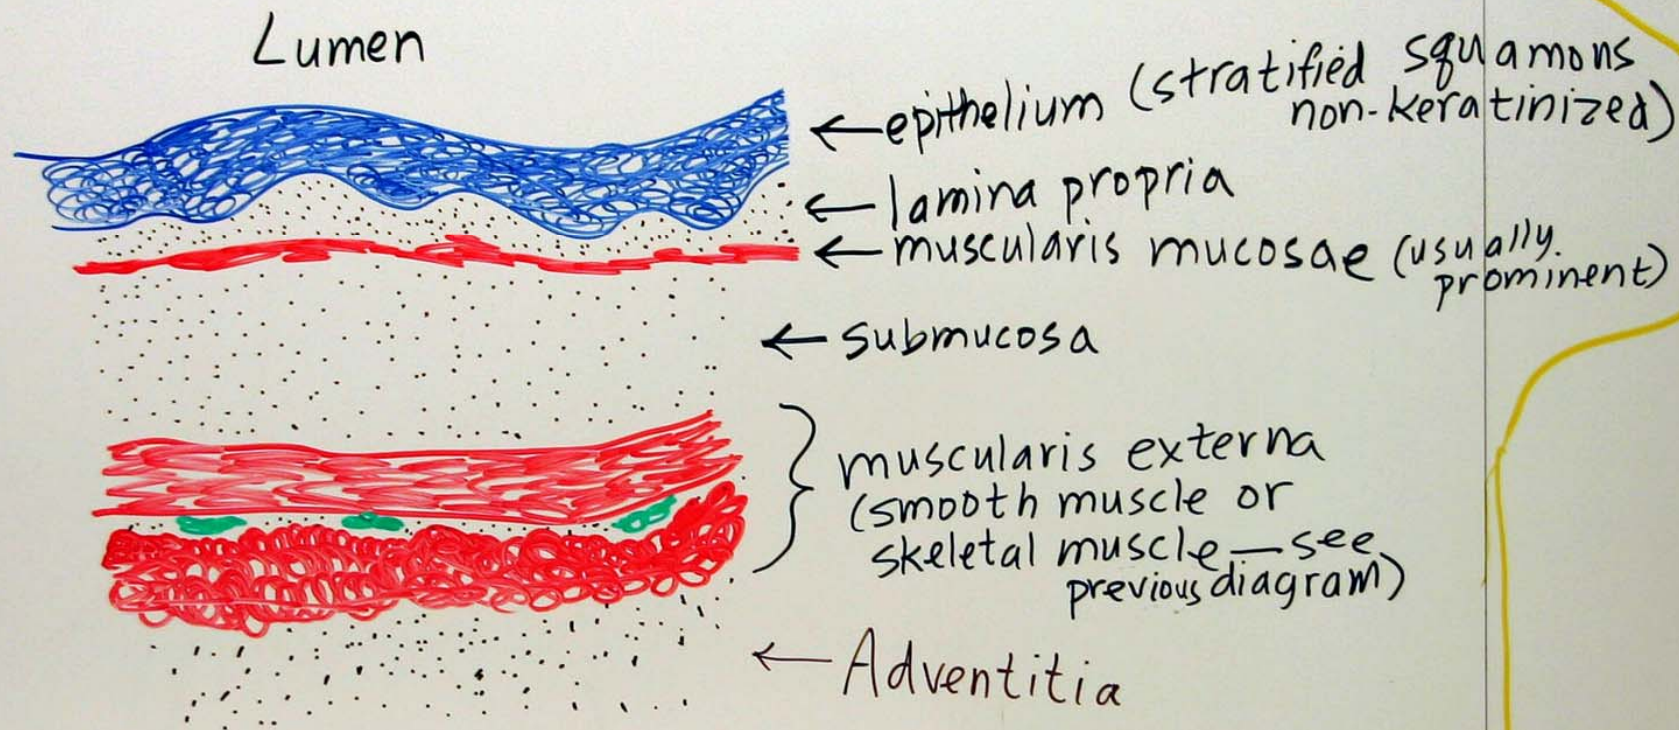 Lumen
epithelium (stratified squamous
non-keratinized)
lamina propria
muscularis mucosae (usually
prominent)
submucosa
muscularis externa
(smooth muscle or
skeletal muscle—see
previous diagram)
Adventitia